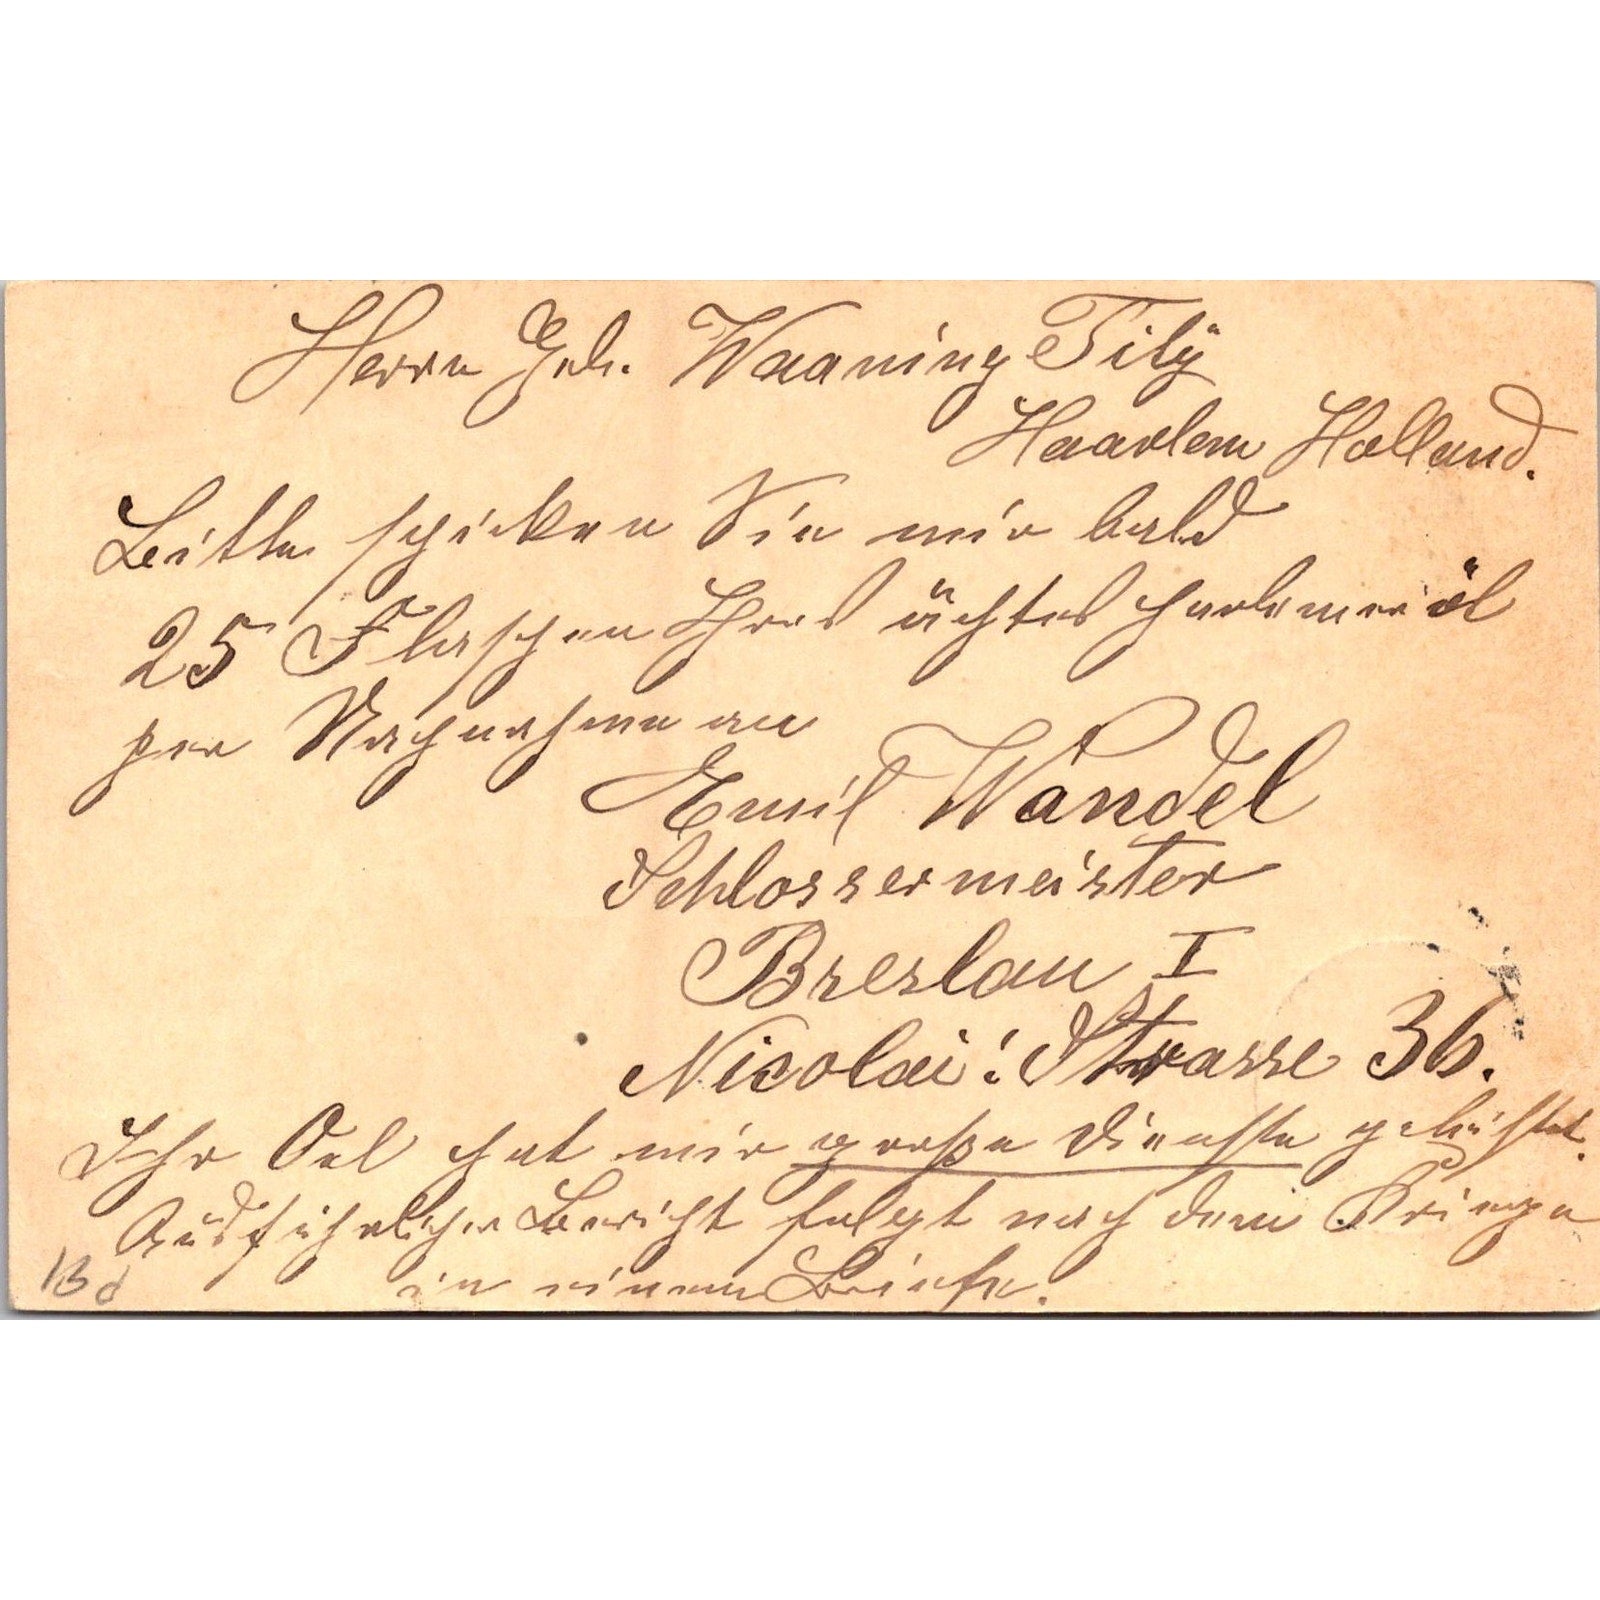 Herrn Geb. Waaning Tilÿ
Haarlem Holland.
Bitte schicken Sie mir bald
25 Flaschen Ihres ächtes Harlemeröl
per Nachnahme an
Emil Wandel
Schlossermeister
Breslau I
Nicolai: Strasse 36.
Ihr Oel hat mir große Dienste geleistet.
Ausführlicher Bericht folgt nach dem Kriege
in einem Briefe.